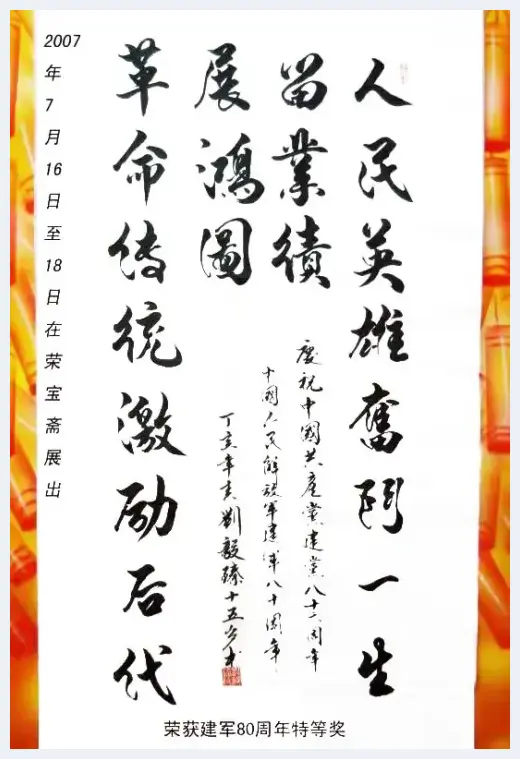 人民英雄奮鬥一生
留業績
展鴻圖
革命傳統激励后代
慶祝中國共產黨建黨八十六周年
中國人民解放軍建軍八十周年
2007年7月16日至18日在荣宝斋展出
荣获建军80周年特等奖